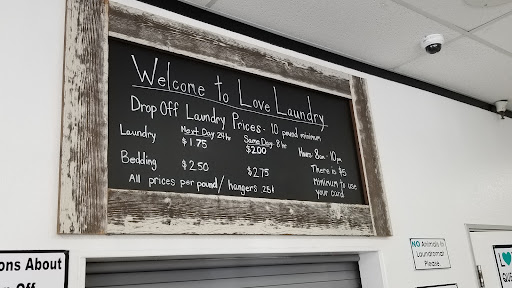 Welcome to Love Laundry
Drop Off Laundry Prices - 10 pound minimum
Next Day 24 hr Same Day 8 hr
Laundry $1.75 $2.00
Bedding $2.50 $2.75
All prices per pound/ hangers 25¢
Hours 8am - 10pm
There is $5
minimum to use
your card
ons About
Off
NO Animals In
Laundromat
Please
L